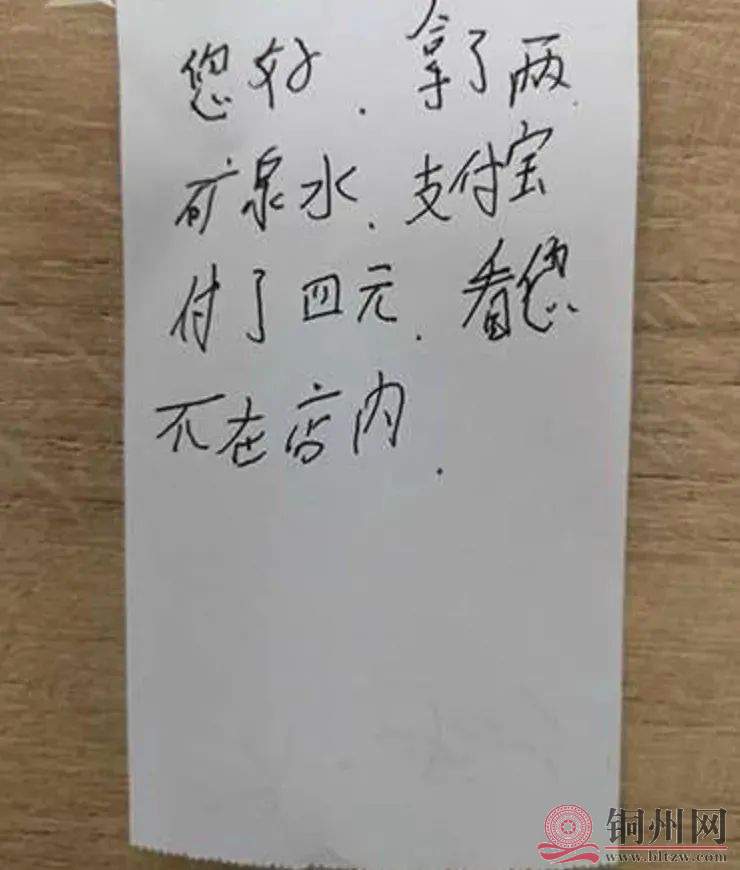 您好.拿了两
矿泉水.支付宝
付了四元.看您
不在店内.
铜州网
www.hltzw.com